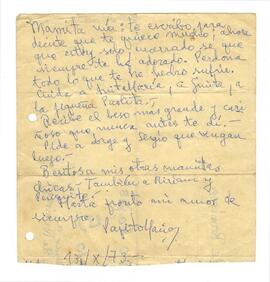 Mamita mía: te escribo para
decirte que te quiero mucho; ahora
que estoy solo y encerrado se que
siempre te he adorado. Perdona
todo lo que te he hecho sufrir.
Cuida a a Anita,
la pequeña
Recibe el beso más grande y cari-
ñoso que nunca antes te di.-
Pide a Jorge y Sergio que vengan
luego.-
Besitos a mis otras
chicas.- También a Miriam y

Hasta pronto mi amor de
siempre.

13/X/73.-